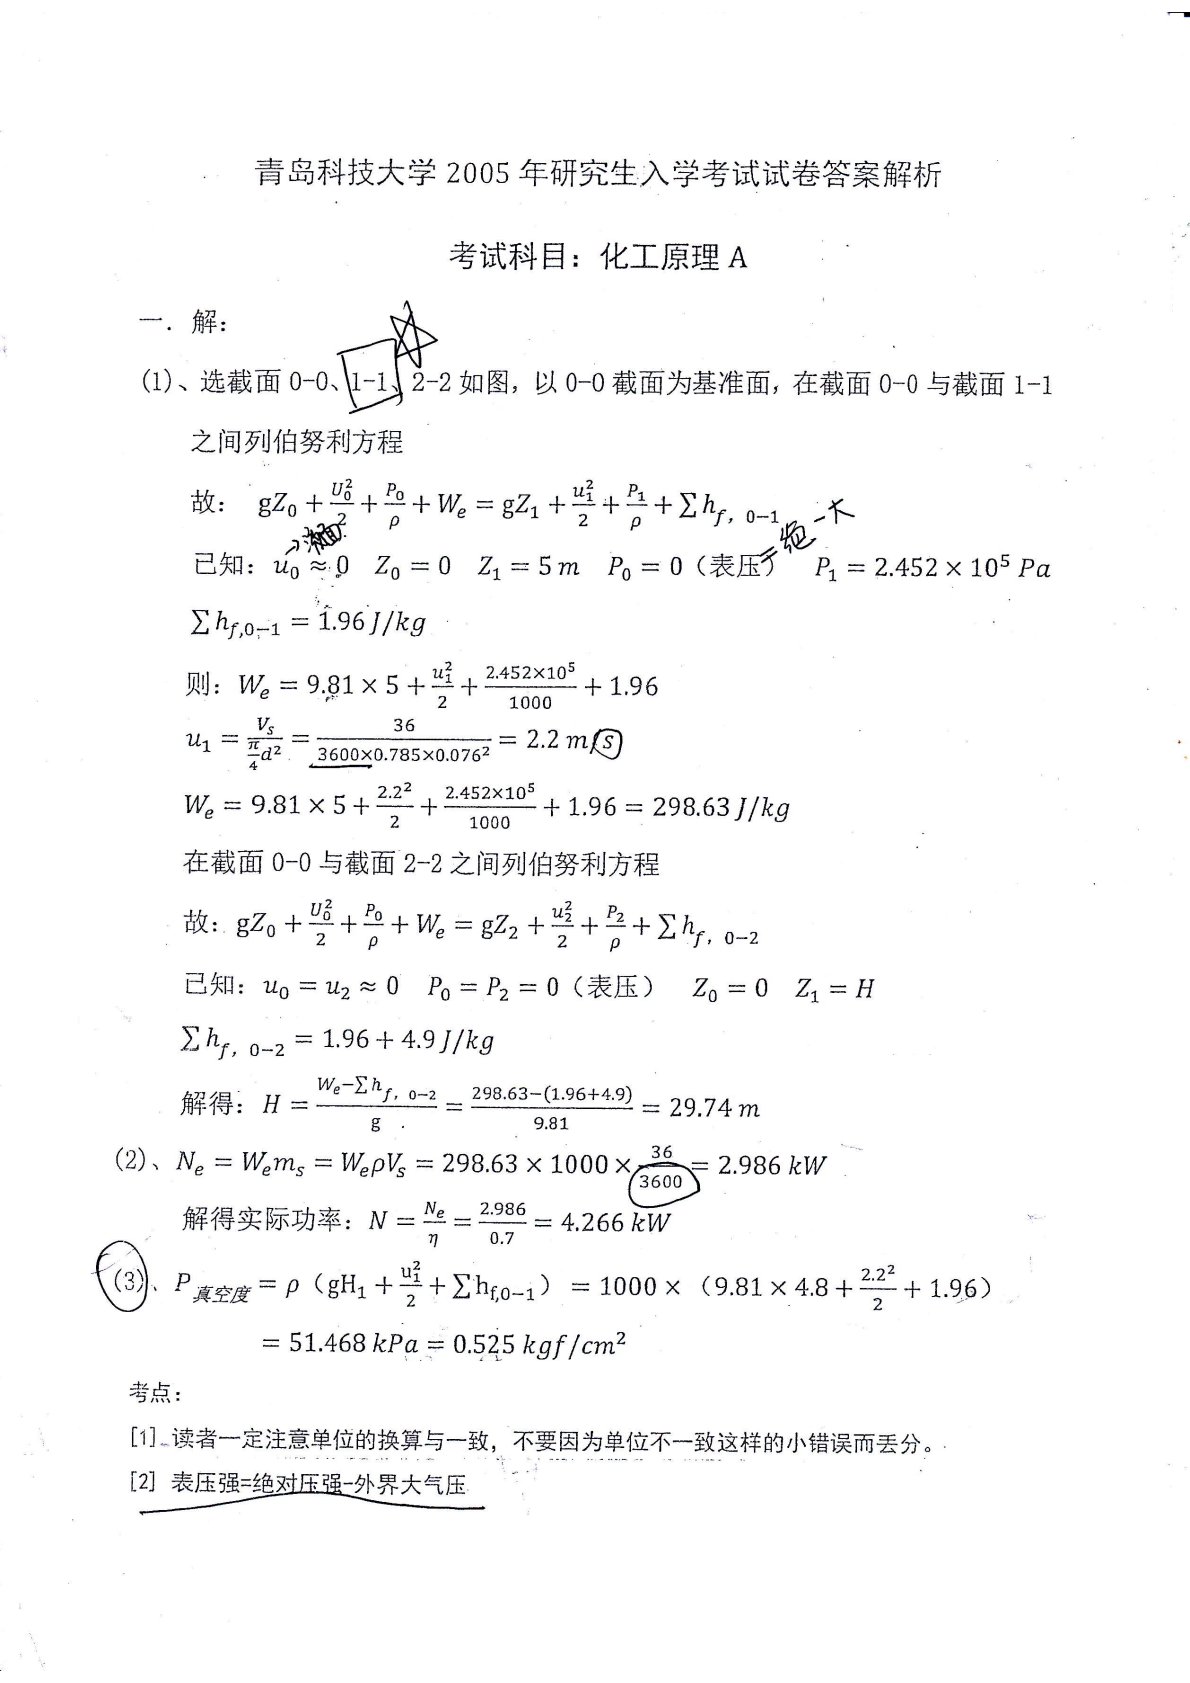 青岛科技大学 2005 年研究生入学考试试卷答案解析
考试科目：化工原理 A
一．解：
(1)、选截面 0-0、1-1、2-2 如图，以 0-0 截面为基准面，在截面 0-0 与截面 1-1
之间列伯努利方程
故： gZ₀ + U₀²/2 + P₀/ρ + Wₑ = gZ₁ + u₁²/2 + P₁/ρ + ∑h_f，0-1
→液面 =绝-大
已知： u₀ ≈ 0 Z₀ = 0 Z₁ = 5 m P₀ = 0（表压） P₁ = 2.452 × 10⁵ Pa
∑h_f,0-1 = 1.96 J/kg
则：Wₑ = 9.81 × 5 + u₁²/2 + 2.452×10⁵/1000 + 1.96
u₁ = Vₛ/(π/4 d²) = 36/(3600×0.785×0.076²) = 2.2 m/s
Wₑ = 9.81 × 5 + 2.2²/2 + 2.452×10⁵/1000 + 1.96 = 298.63 J/kg
在截面 0-0 与截面 2-2 之间列伯努利方程
故：gZ₀ + U₀²/2 + P₀/ρ + Wₑ = gZ₂ + u₂²/2 + P₂/ρ + ∑h_f，0-2
已知：u₀ = u₂ ≈ 0 P₀ = P₂ = 0（表压） Z₀ = 0 Z₁ = H
∑h_f，0-2 = 1.96 + 4.9 J/kg
解得：H = (Wₑ-∑h_f，0-2)/g = (298.63-(1.96+4.9))/9.81 = 29.74 m
(2)、Nₑ = Wₑmₛ = WₑρVₛ = 298.63 × 1000 × 36/3600 = 2.986 kW
解得实际功率：N = Nₑ/η = 2.986/0.7 = 4.266 kW
(3)、P真空度 = ρ（gH₁ + u₁²/2 + ∑h_f,0-1） = 1000 ×（9.81 × 4.8 + 2.2²/2 + 1.96）
= 51.468 kPa = 0.525 kgf/cm²
考点：
[1] 读者一定注意单位的换算与一致，不要因为单位不一致这样的小错误而丢分。
[2] 表压强=绝对压强-外界大气压